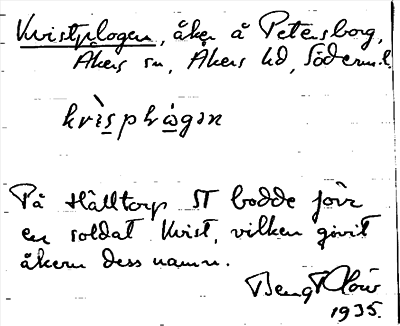 Kvistplogen, åker å Petersborg,
Åkers sn, Åkers hd, Söderml.
På Hälltorp ST bodde förr
en soldat Kvist, vilken givit
åkern dess namn.
Bengt
1935.